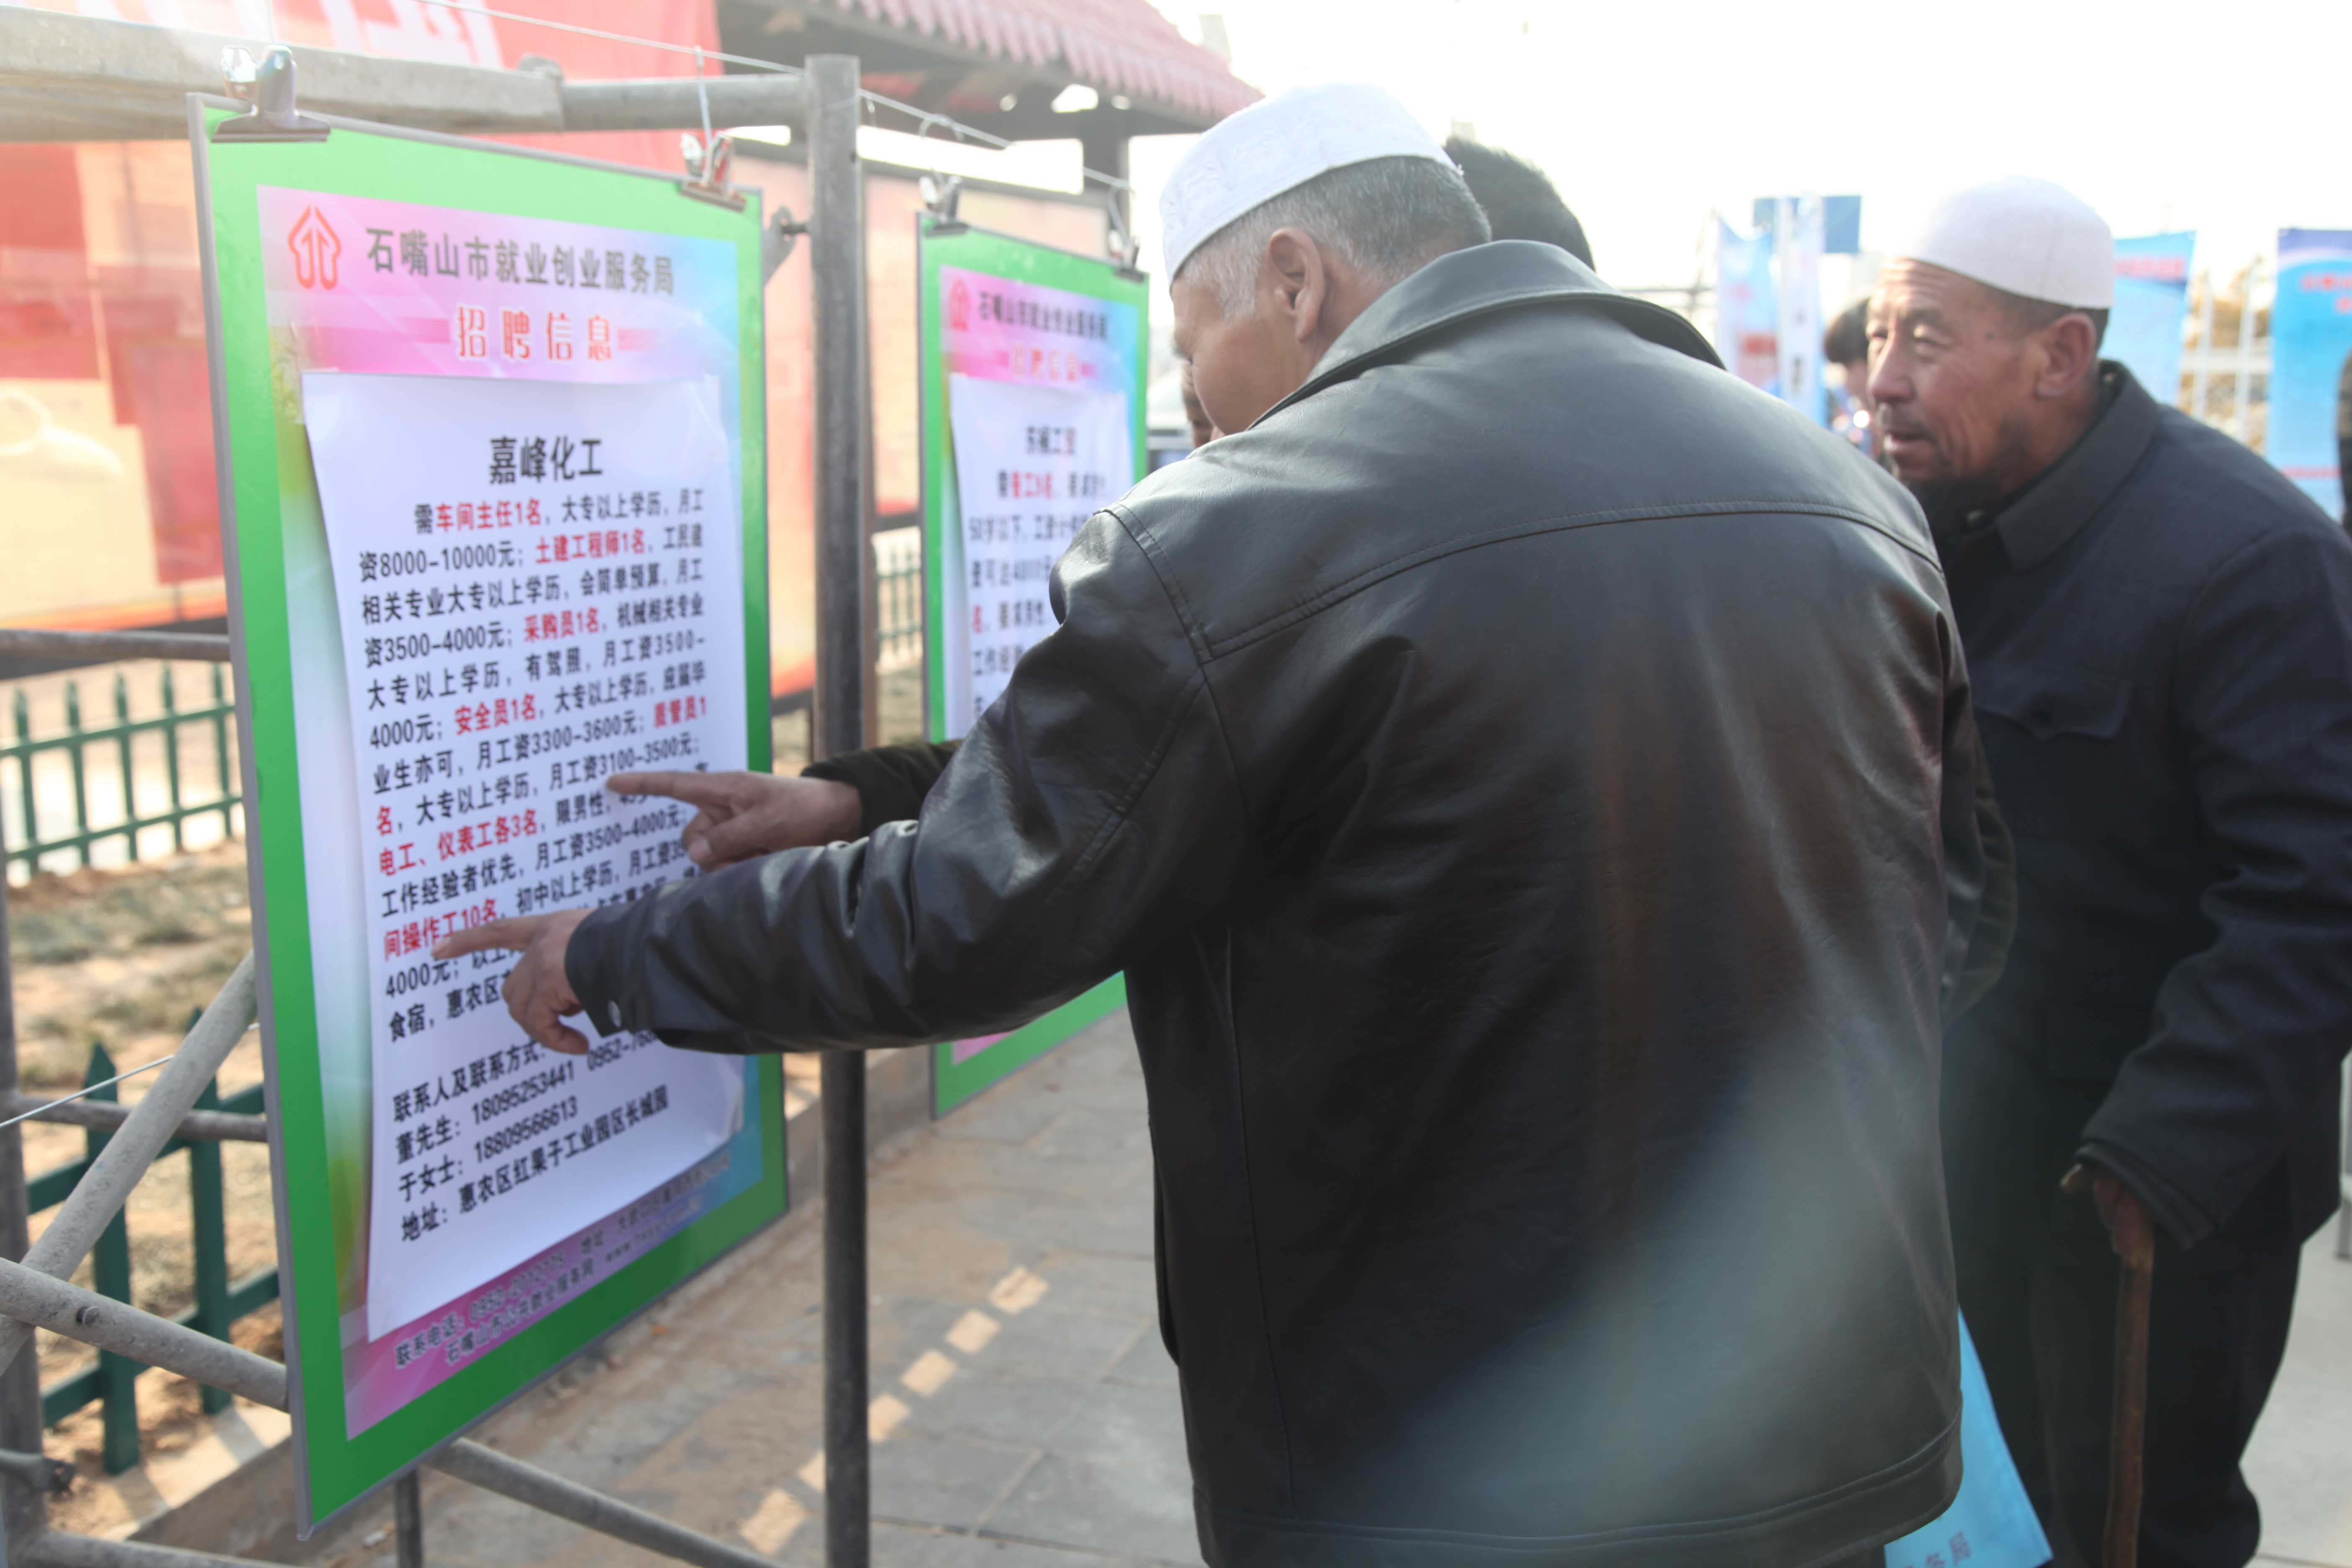 石嘴山市就业创业服务局
招聘信息
嘉峰化工
需车间主任1名，大专以上学历，月工
资8000-10000元；土建工程师1名，工民建
相关专业大专以上学历，会简单预算，月工
资3500-4000元；采购员1名，机械相关专业
大专以上学历，有驾照，月工资3500-
4000元；安全员1名，大专以上学历，应届毕
业生亦可，月工资3300-3600元；质管员1
名，大专以上学历，月工资3100-3500元；
电工、仪表工各3名，限男性，
工作经验者优先，月工资3500-4000元；
间操作工10名，初中以上学历，月工资
4000元；以上
食宿，惠农区
联系人及联系方式：
董先生：18095253441 0952-
于女士：18809566613
地址：惠农区红果子工业园区长城园
联系电话：0952- 地址：
石嘴山市公共就业服务网
石嘴山市就业创业服务局
招聘信息
50岁以下，工资计
名，要求男性
工作经
务局